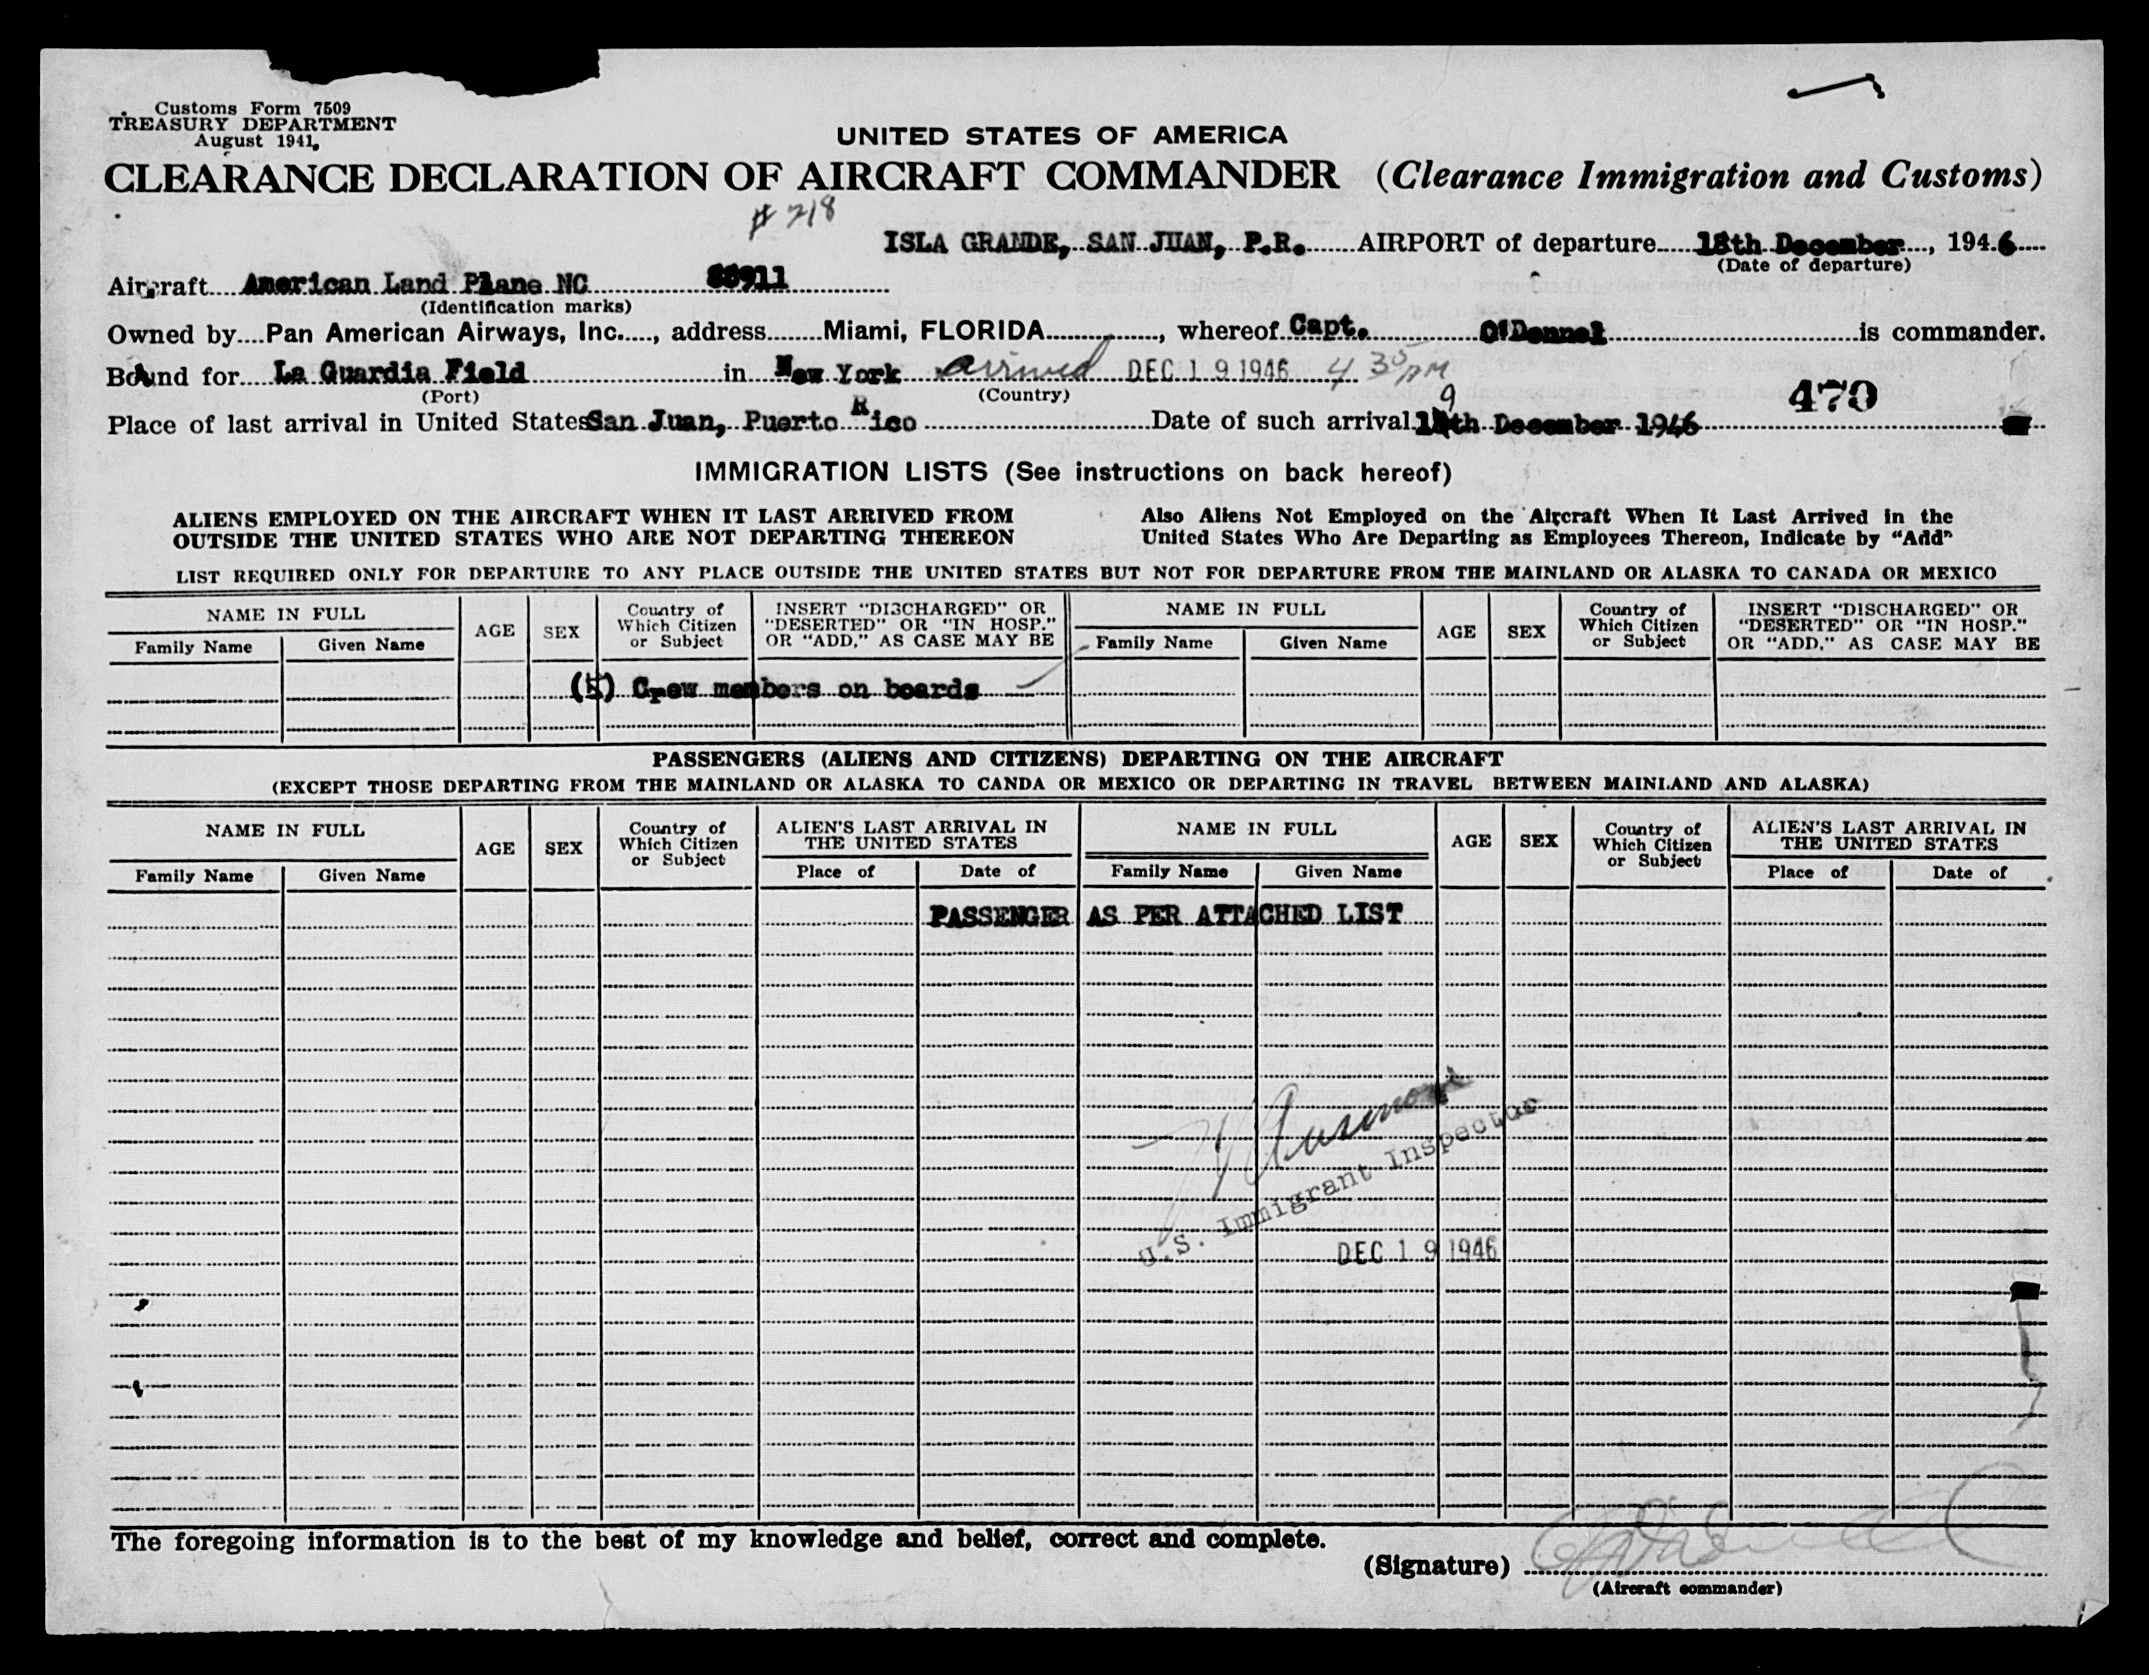 Customs Form 7509
TREASURY DEPARTMENT
August 1941.
UNITED STATES OF AMERICA
CLEARANCE DECLARATION OF AIRCRAFT COMMANDER (Clearance Immigration and Customs)
# 218
ISLA GRANDE, SAN JUAN, P.R. AIRPORT of departure 18th December, 1946
(Date of departure)
Aircraft American Land Plane NC 88911
(Identification marks)
Owned by Pan American Airways, Inc., address Miami, FLORIDA, whereof Capt. O'Donnel is commander.
Bound for La Guardia Field in New York arrived DEC 19 1946 4 35 PM
(Port) (Country)
470
Place of last arrival in United States San Juan, Puerto Rico Date of such arrival 19th December 1946
IMMIGRATION LISTS (See instructions on back hereof)
ALIENS EMPLOYED ON THE AIRCRAFT WHEN IT LAST ARRIVED FROM
OUTSIDE THE UNITED STATES WHO ARE NOT DEPARTING THEREON
Also Aliens Not Employed on the Aircraft When It Last Arrived in the
United States Who Are Departing as Employees Thereon, Indicate by “Add”
LIST REQUIRED ONLY FOR DEPARTURE TO ANY PLACE OUTSIDE THE UNITED STATES BUT NOT FOR DEPARTURE FROM THE MAINLAND OR ALASKA TO CANADA OR MEXICO
NAME IN FULL
Family Name Given Name
AGE
SEX
Country of
Which Citizen
or Subject
INSERT “DISCHARGED” OR
“DESERTED” OR “IN HOSP.”
OR “ADD,” AS CASE MAY BE
NAME IN FULL
Family Name Given Name
AGE
SEX
Country of
Which Citizen
or Subject
INSERT “DISCHARGED” OR
“DESERTED” OR “IN HOSP.”
OR “ADD,” AS CASE MAY BE
(5) Crew members on boards
PASSENGERS (ALIENS AND CITIZENS) DEPARTING ON THE AIRCRAFT
(EXCEPT THOSE DEPARTING FROM THE MAINLAND OR ALASKA TO CANDA OR MEXICO OR DEPARTING IN TRAVEL BETWEEN MAINLAND AND ALASKA)
NAME IN FULL
Family Name Given Name
AGE
SEX
Country of
Which Citizen
or Subject
ALIEN'S LAST ARRIVAL IN
THE UNITED STATES
Place of Date of
NAME IN FULL
Family Name Given Name
AGE
SEX
Country of
Which Citizen
or Subject
ALIEN'S LAST ARRIVAL IN
THE UNITED STATES
Place of Date of
PASSENGER AS PER ATTACHED LIST
U.S. Immigrant Inspector
DEC 19 1946
The foregoing information is to the best of my knowledge and belief, correct and complete.
(Signature)
(Aircraft commander)